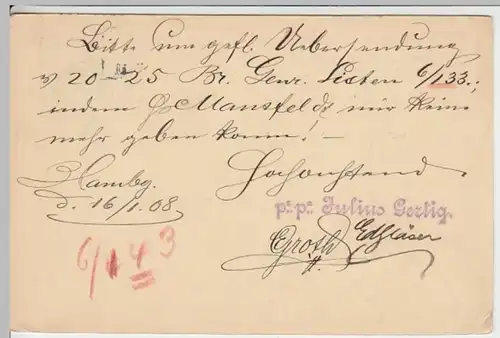 Bitte um gefl. Uebersendung
v 20 25 Br. Genr. Listen 6/133.;
indem Mansfeld mir keine
mehr geben kann! —
Hochachtend
Hambg.
d. 16/1.08
p.pa. Julius Gertig.
6/1 4 3